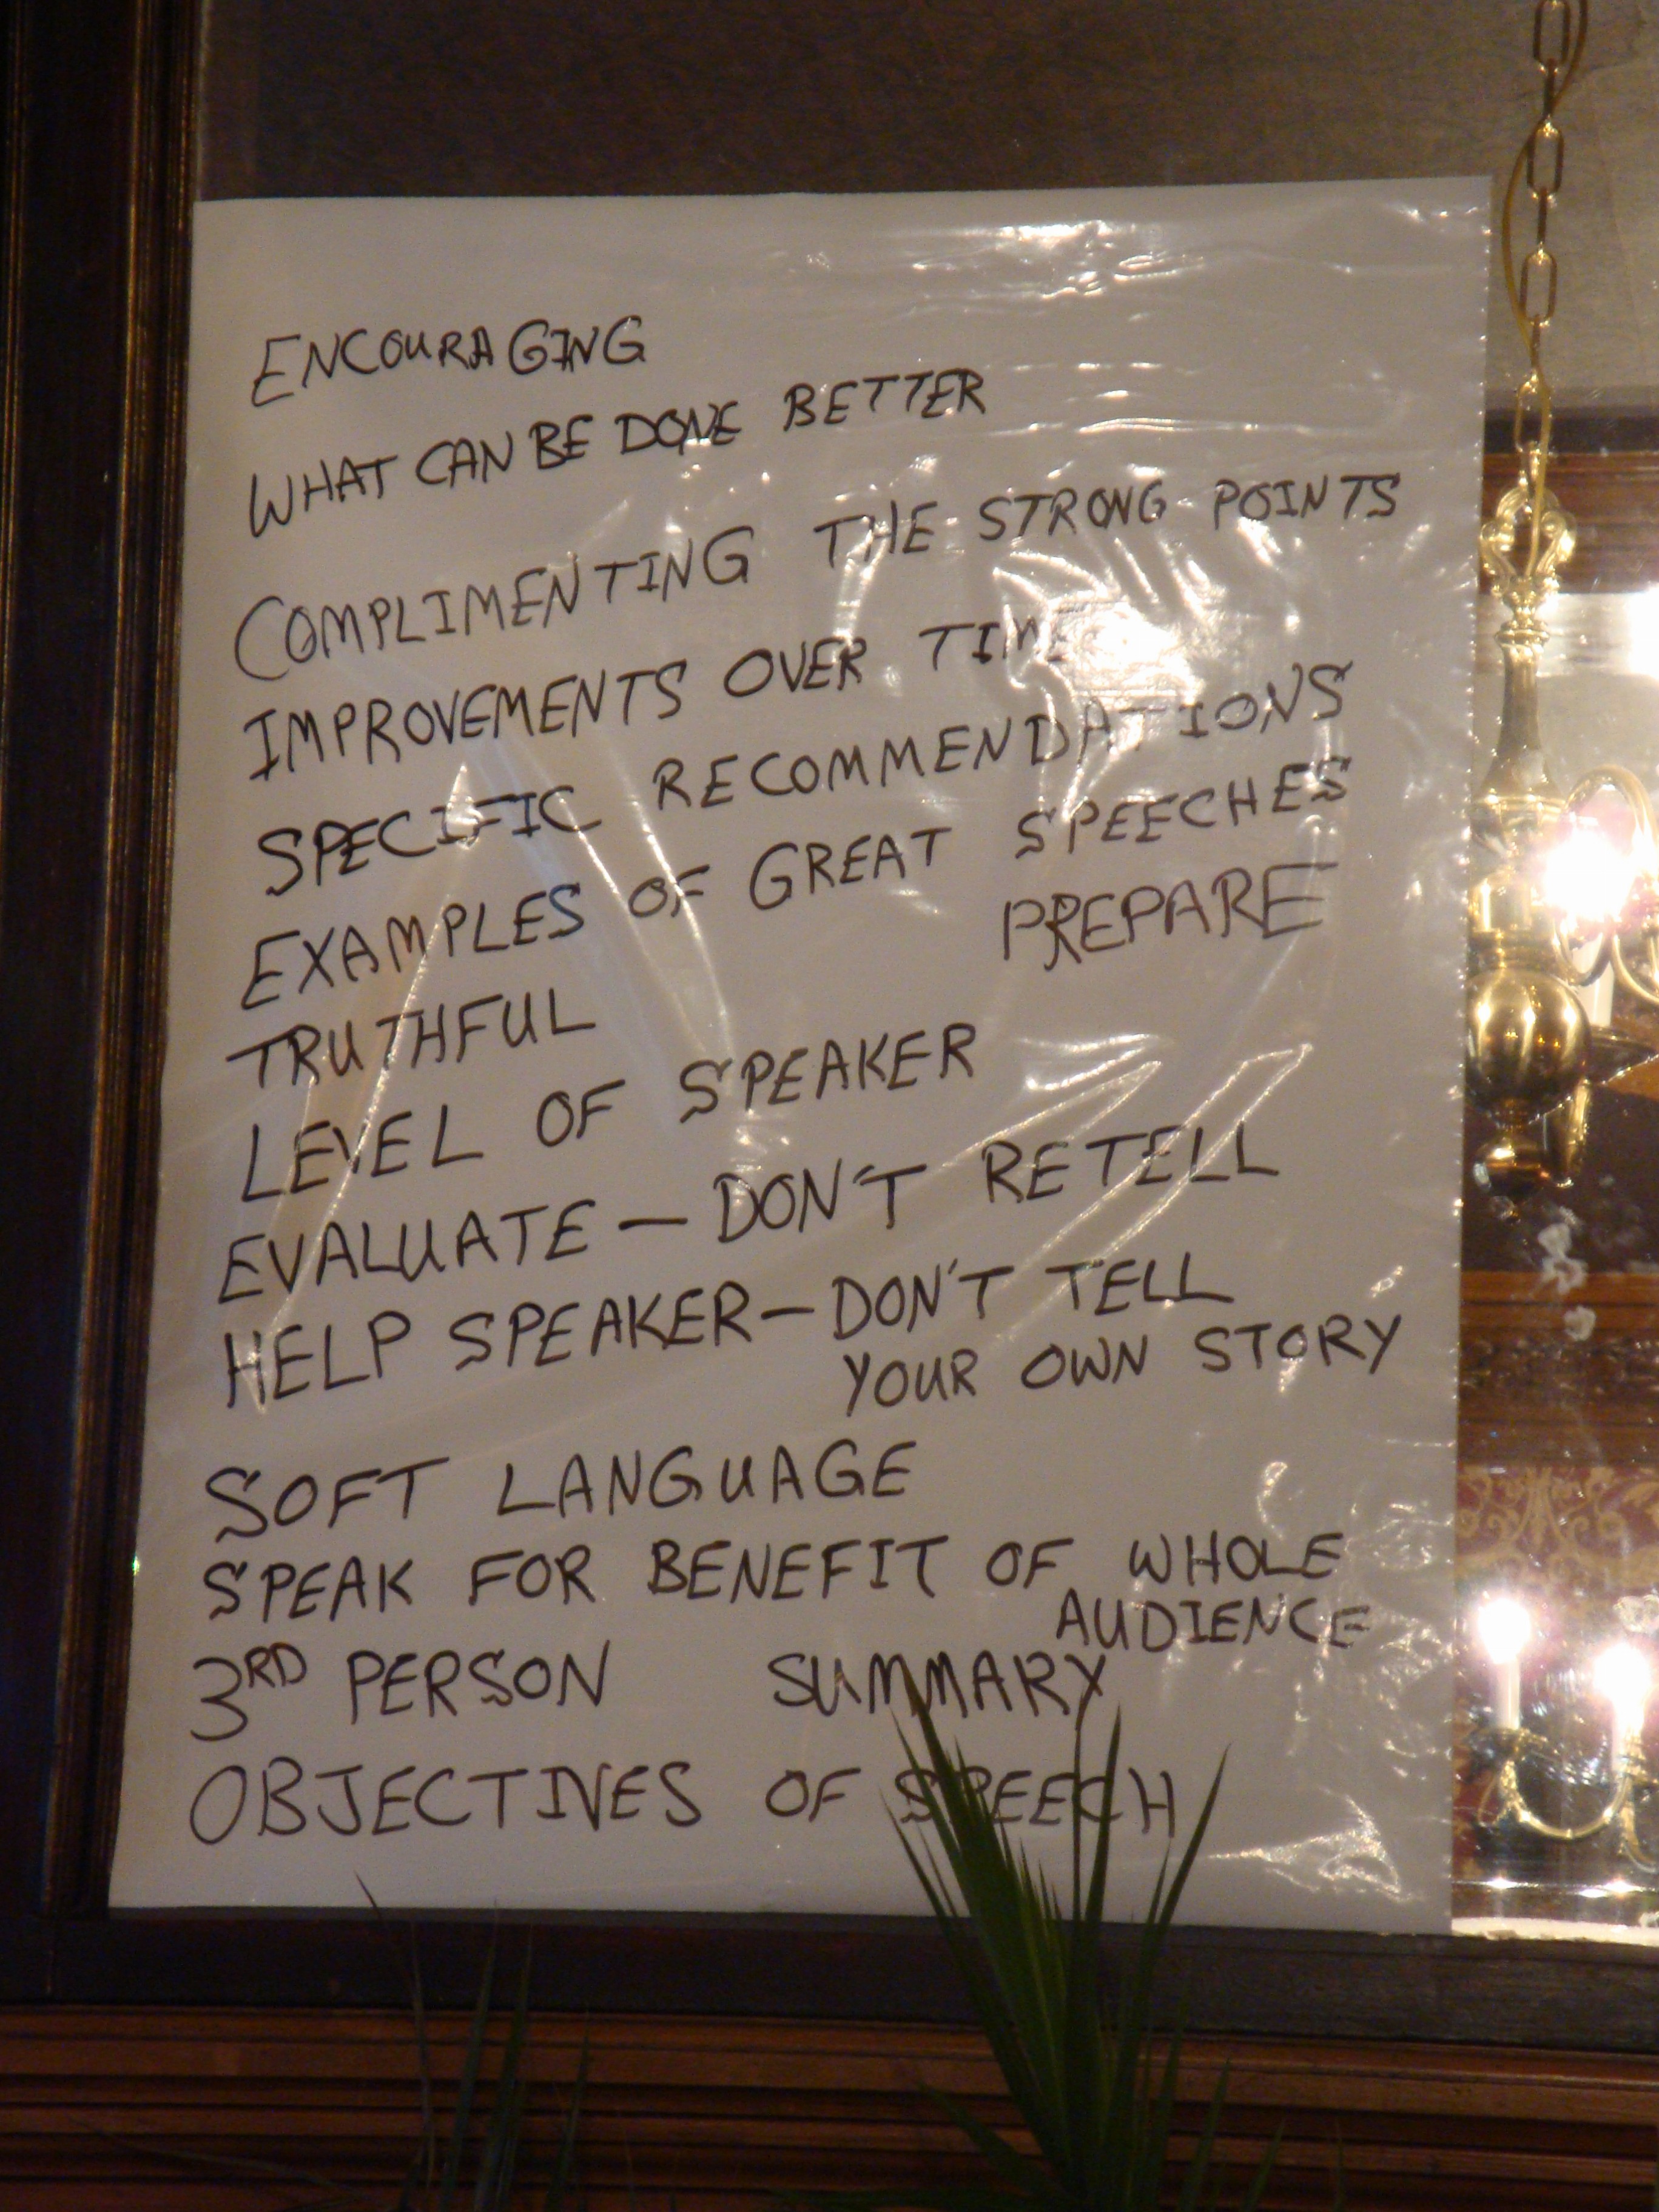 ENCOURAGING
WHAT CAN BE DONE BETTER
COMPLIMENTING THE STRONG POINTS
IMPROVEMENTS OVER TIME
SPECIFIC RECOMMENDATIONS
EXAMPLES OF GREAT SPEECHES
PREPARE
TRUTHFUL
LEVEL OF SPEAKER
EVALUATE — DON'T RETELL
HELP SPEAKER — DON'T TELL
YOUR OWN STORY
SOFT LANGUAGE
SPEAK FOR BENEFIT OF WHOLE
AUDIENCE
3RD PERSON SUMMARY
OBJECTIVES OF SPEECH